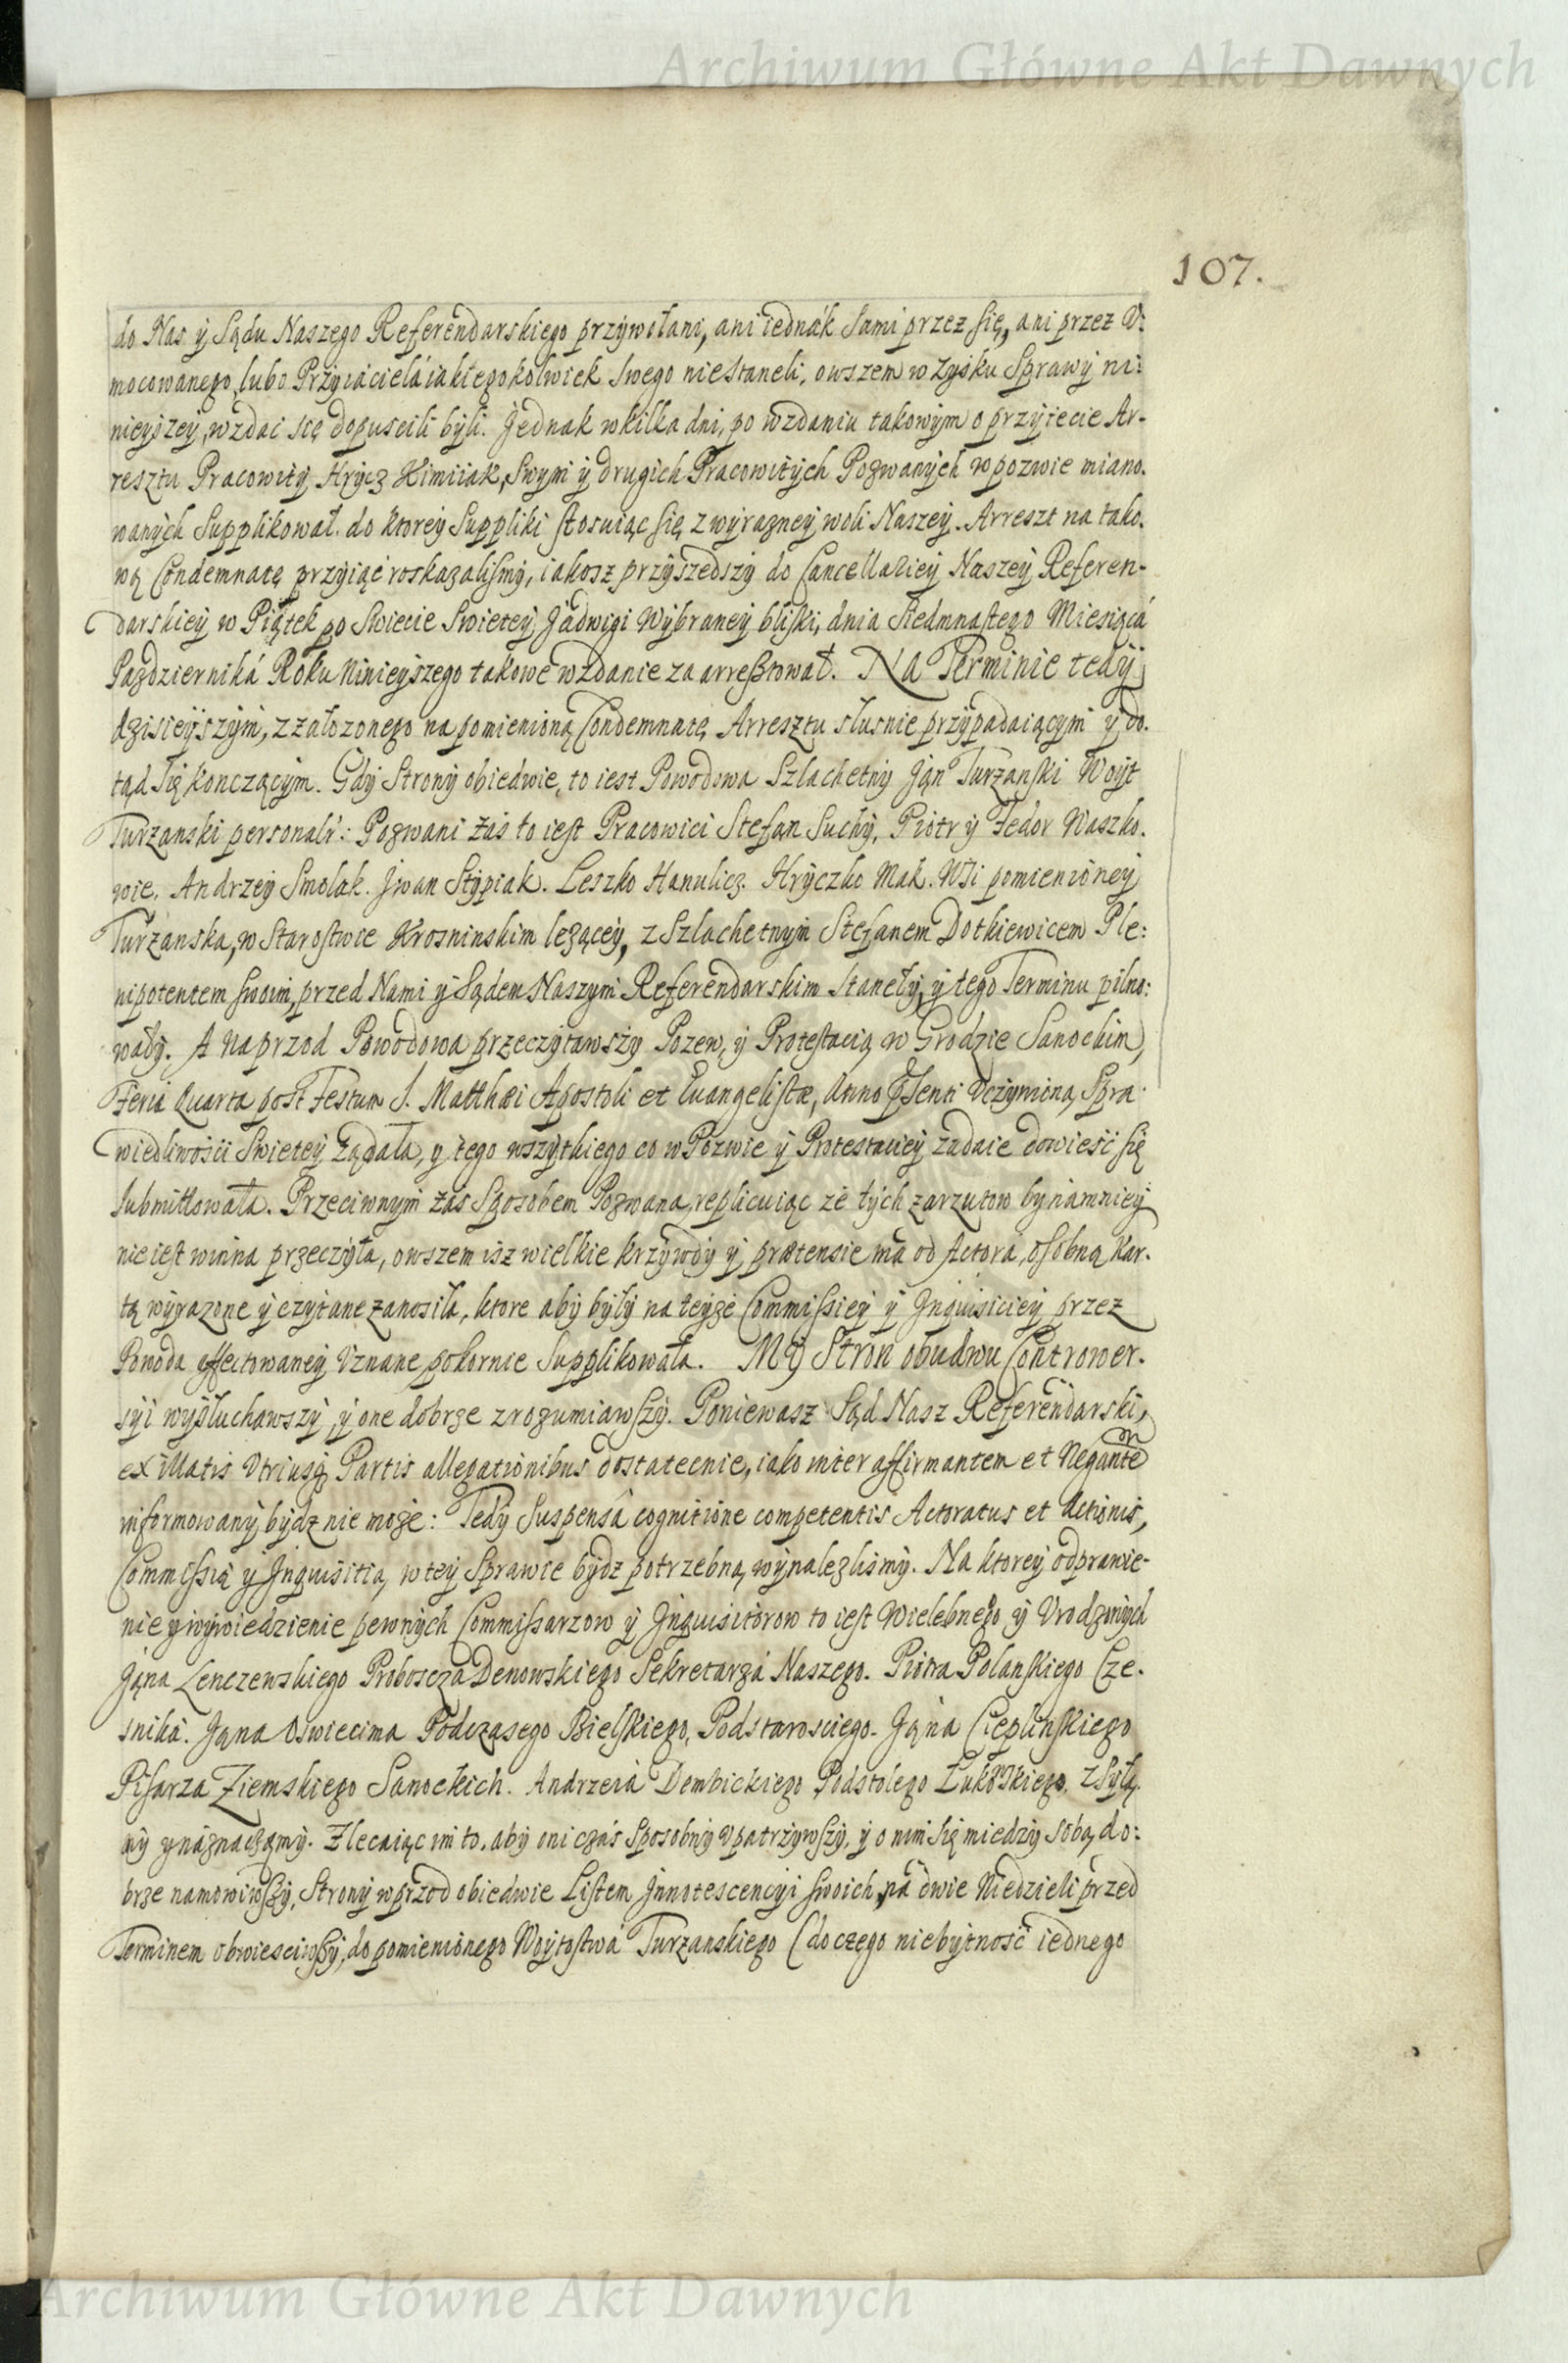 Archiwum Główne Akt Dawnych
107.
do Nas ÿ Sądu Naszego Referendarskiego przÿwołani, ani iednák sami przez się, ani przez V:
mocowanego, lubo Przÿiácielá iakiegokolwiek swego niestaneli, owszem w zÿsku Sprawÿ ni:
nieÿszeÿ, wzdać się dopuscili bÿli. Jednak wkilka dni, po wzdaniu takowÿm o przÿięcie Ar-
resztu Pracowitÿ Hrÿcz Kimiiak, Swÿm ÿ drugich Pracowitÿch Pozwanÿch w pozwie miano.
wanÿch Supplikował. do ktoreÿ Suppliki stosuiąc się z wÿrazneÿ woli Naszeÿ. Arreszt na tako.
wą Condemnatę przÿiąć roskazalismÿ, iakosz przÿszedszÿ do Cancellarieÿ Naszeÿ Referen-
darskieÿ w Piątek po Swięcie Swieteÿ Jadwigi Wÿbraneÿ bliski, dnia siedmnastego Miesiącá
Pazdzierniká Roku Ninieÿszego takowe wzdanie za arresztował. Na Terminie tedÿ
dzisieÿszÿm, z założonego na pomienioną Condemnatę Arresztu słusnie przÿpadaiącÿm ÿ do.
tąd się konczącÿm. Gdÿ Stronÿ obiedwie, to iest Powodowa Szlachetnÿ Jąn Turzanski Woÿt
Turzanski personalr: Pozwani zaś to iest Pracowici Stefan Suchÿ, Piotr ÿ Fedor Waszko.
wie. Andrzeÿ Smolak. Jwan Stÿpiak. Leszko Hanulicz. Hrÿczko Mak. Wsi pomienioneÿ
Turzanska, w Starostwie Krosninskim leząceÿ, z Szlachetnÿm Stefanem Dotkiewicem Ple:
nipotentem swoim, przed Nami ÿ Sądem Naszÿm Referendarskim Stanełÿ, ÿ tego Terminu pilno:
wałÿ. A naprzod Powodowa przeczÿtawszÿ Pozew, ÿ Protestacią w Grodzie Sanockim,
Feria Quarta post Festum S. Matthæi Apostoli et Euangelistæ, Anno Pꝛsenti Vczÿnioną, Spra-
wiedliwości Swieteÿ żądała, ÿ tego wszÿtkiego co w Pozwie ÿ Protestacieÿ zadaie dowieść się
submittowała. Przeciwnÿm zaś Sposobem Pozwana, replicuiąc ze tÿch zarzutow bÿnamnieÿ
nie iest winna przeczÿła, owszem isz wielkie krzÿwdÿ ÿ prætensie ma od Actora, osobną Kar.
tą wÿrazone ÿ czÿtane zanosiła, ktore abÿ bÿłÿ na teÿże Commissieÿ ÿ Jnquisicieÿ przez
Powoda affectowaneÿ Vznane pokornie Supplikowała. Mÿ Stron obudwu Contrower.
sÿi wÿsłuchawszÿ, ÿ one dobrze zrozumiawszÿ. Poniewasz Sąd Nasz Referendarski,
ex illatis Vtriusq̃ Partis allegationibus dostatecnie, iako inter affirmantem et Negante
informowanÿ bÿdz nie może: Tedÿ Suspensâ cognitione competentis Actoratus et Actionis,
Commissią ÿ Jnquisitią w teÿ Sprawie bÿdz potrzebną wÿnalezlismÿ. Na ktoreÿ odprawie-
nie ÿ wÿwiedzienie pewnÿch Commissarzow ÿ Jnquisitorow to iest Wielebnego ÿ Vrodzonÿch
Jąna Lenczewskiego Proboscza Denowskiego Sekretarzá Naszego. Piotra Polanskiego Cze-
sniká. Jąna Oswiecima Podcząsego Bielskiego, Podstarosciego. Jąna Cieplinskiego
Pisarza Ziemskiego Sanockich. Andrzeiá Dembickiego Podstolego Łukowskiego. Zsÿłą.
mÿ ÿ náznaczamÿ. Zlecaiąc im to. abÿ oni czás Sposobnÿ Vpatrzÿwszÿ, ÿ o nim się miedzÿ sobą do:
brze namowiwszÿ, Stronÿ wprzod obiedwie Listem Jnnotescencÿi swoich, ná dwie Niedzieli przed
Terminem obwiesciwszÿ, do pomienionego Woÿtostwá Turzanskiego (do czego niebÿtność iednego
Archiwum Główne Akt Dawnych